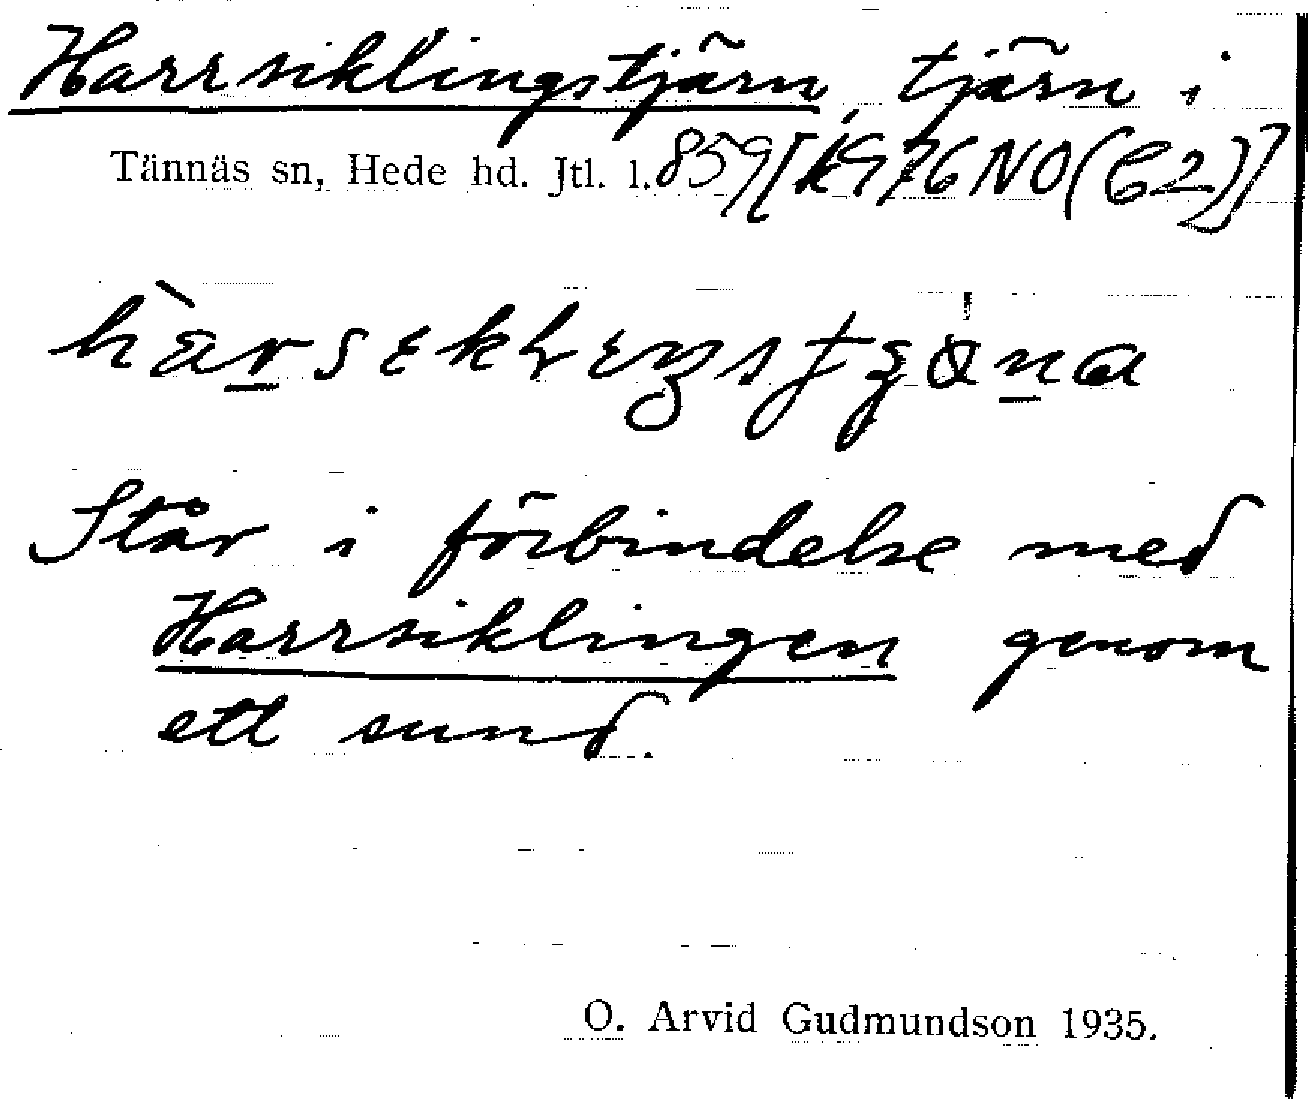 Harrsiklingstjärn, tjärn i
Tännäs sn, Hede hd. Jtl. l. 859 [1976 NO (C2)]
Står i förbindelse med
Harrsiklingen genom
ett sund.
O. Arvid Gudmundson 1935.